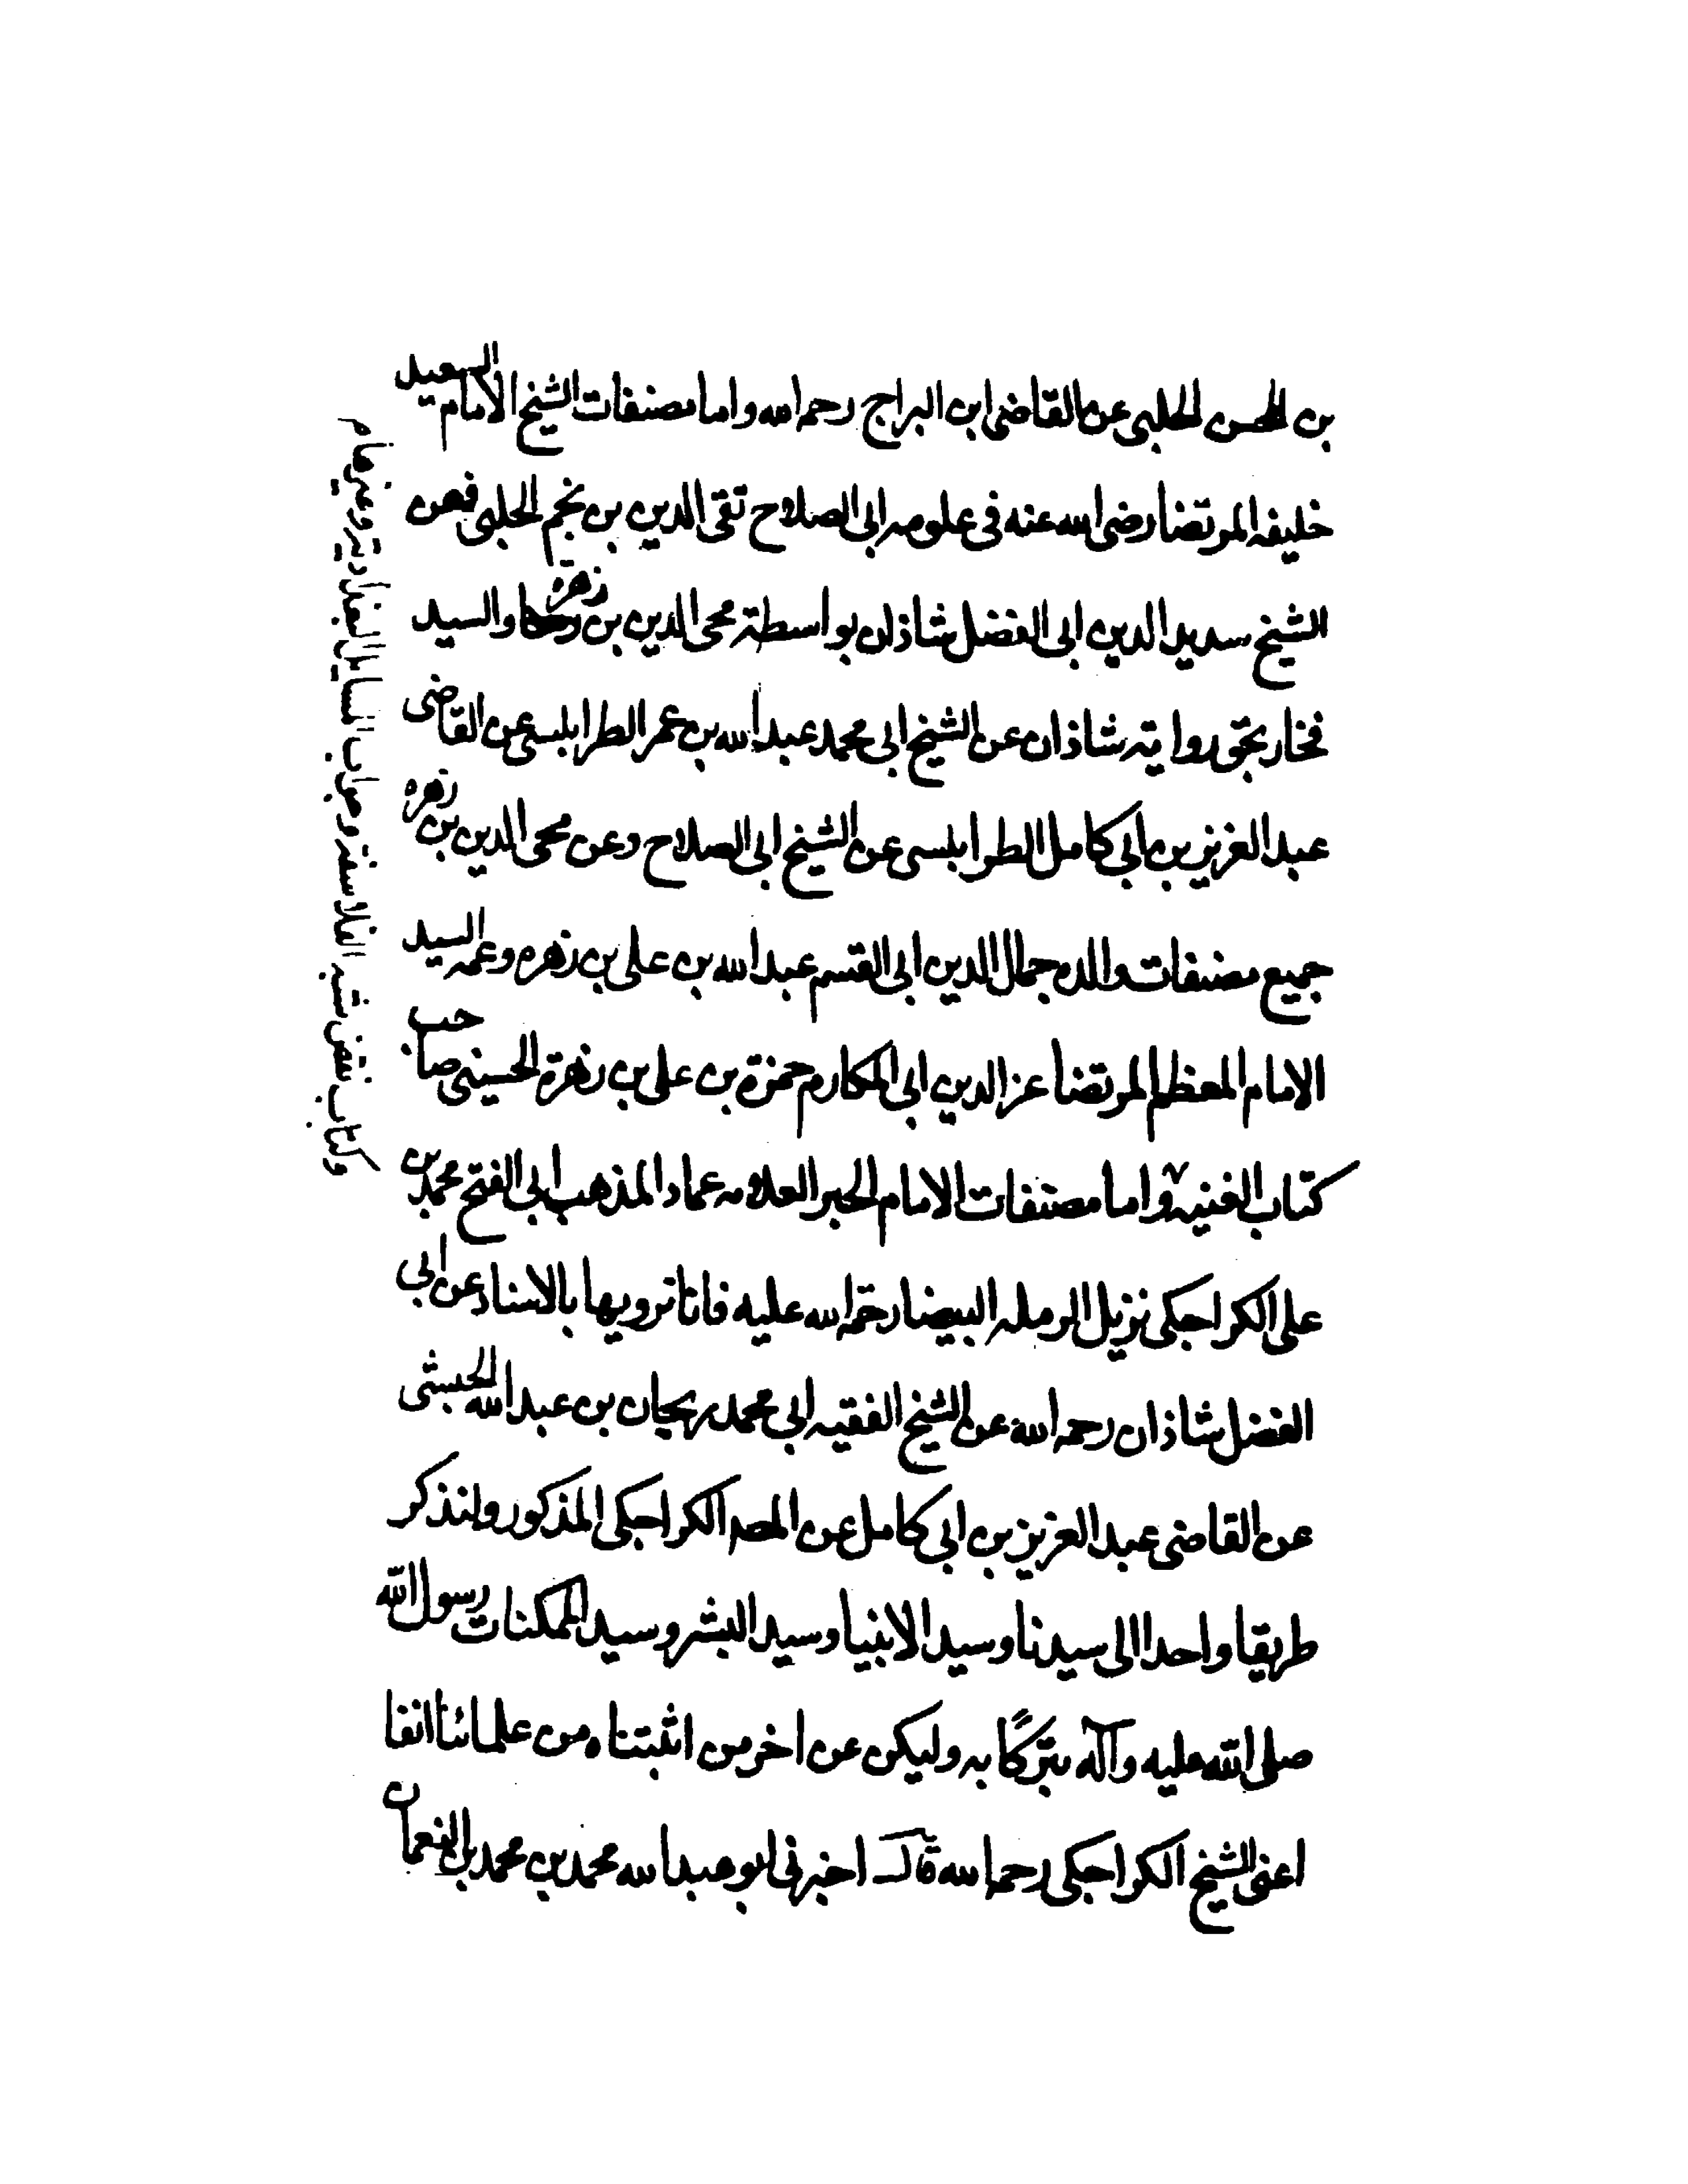 بن الحسن الحلبى عن القاضى ابن البراج رحمه الله واما مصنفات الشيخ الامام السعيد
خليفه المرتضا رضى الله عنه فى علومه ابى الصلاح تقى الدين بن نجم الحلبى فعن
الشيخ سديد الدين ابى الفضل شاذان بواسطة محى الدين بن زهره والسيد
فخار بحق روايته شاذان عن الشيخ ابى محمد عبد الله بن عمر الطرابلسى عن القاضى
عبد العزيز بن ابى كامل الطرابلسى عن الشيخ ابى الصلاح وعن محى الدين بن زهره
جميع مصنفات والده جمال الدين ابى القسم عبد الله بن على بن زهره وعمه السيد
الامام المعظم المرتضا عز الدين ابى المكارم حمزة بن على بن زهرة الحسينى صاحب
كتاب الغنيه واما مصنفات الامام الحبر العلامه عماد المذهب ابى الفتح محمد بن
على الكراجكى نزيل الرمله البيضا رحمة الله عليه فانا نرويها بالاسناد عن ابى
الفضل شاذان رحمه الله عن الشيخ الفقيه ابى محمد ريحان بن عبد الله الحبشى
عن القاضى عبد العزيز بن ابى كامل عن الكراجكى المذكور ولنذكر
طريقا واحدا الى سيدنا وسيد الانبيا وسيد البشر وسيد الممكنات رسول الله
صلى الله عليه وآله تبرّكًا به وليكن عن اخر من اثبتناه من علمائنا انفا
اعنى الشيخ الكراجكى رحمه الله قال اخبرنى ابو عبد الله محمد بن محمد بن النعمان
وكتاب نقض شبه الفلاسفة وجواب المسايل البغداديّة وغيرها م